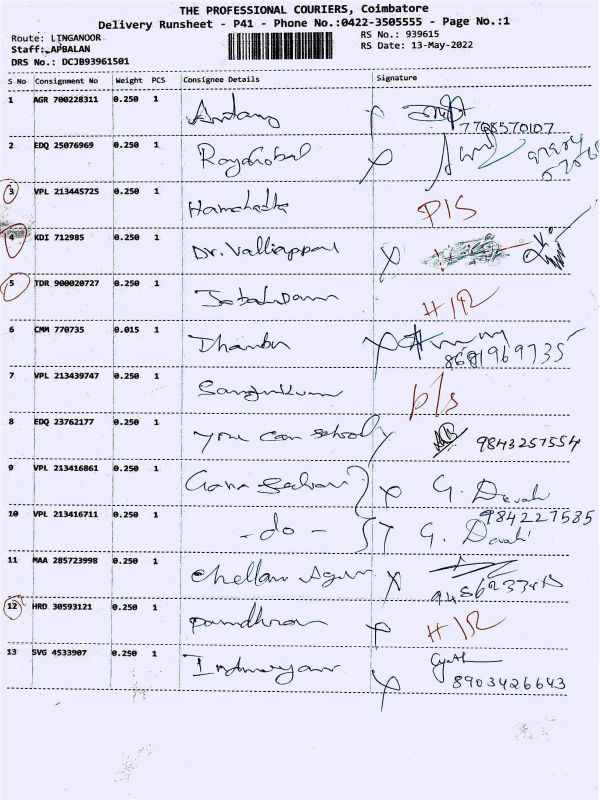 THE PROFESSIONAL COURIERS, Coimbatore
Delivery Runsheet - P41 - Phone No.:0422-3505555 - Page No.:1
Route: LINGANOOR
RS No.: 939615
Staff: APBALAN
RS Date: 13-May-2022
DRS No.: DCJB93961501
S No Consignment No Weight PCS Consignee Details Signature
1 AGR 700228311 0.250 1
7708570107
2 EDQ 25076969 0.250 1
3 VPL 213445725 0.250 1 P/S
4 KDI 712985 0.250 1 Dr. Valliappan
5 TDR 900020727 0.250 1
6 CMM 770735 0.015 1
8681969735
7 VPL 213439747 0.250 1 p/s
8 EDQ 23762177 0.250 1 you can school 9843257554
9 VPL 213416861 0.250 1 G. Devaki
984227585
10 VPL 213416711 0.250 1 - do - G. Devaki
11 MAA 285723998 0.250 1
12 HRD 30593121 0.250 1
13 SVG 4533907 0.250 1
8903426643